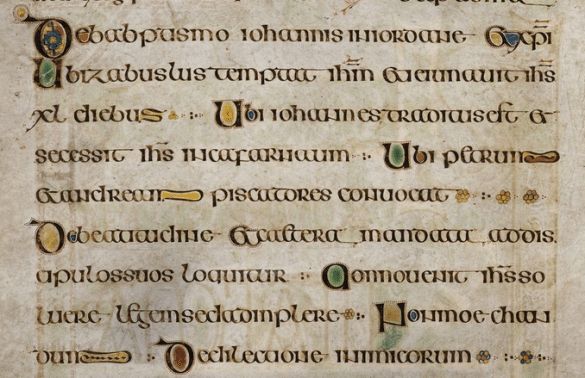 De babtismo iohannis in iordane Et xpi
Ubi zabulus temptat ihm et ieiunauit ihs
xl diebus Ubi iohannes traditus est et
secessit ihs in cafarnaum Ubi petrum
et andream piscatores conuocat
De beatitudine Et cetera mandata ad dis
cipulos suos loquitur Quo non uenit ihs so
luere legem sed adimplere Non moechan
dum De dilectione inimicorum